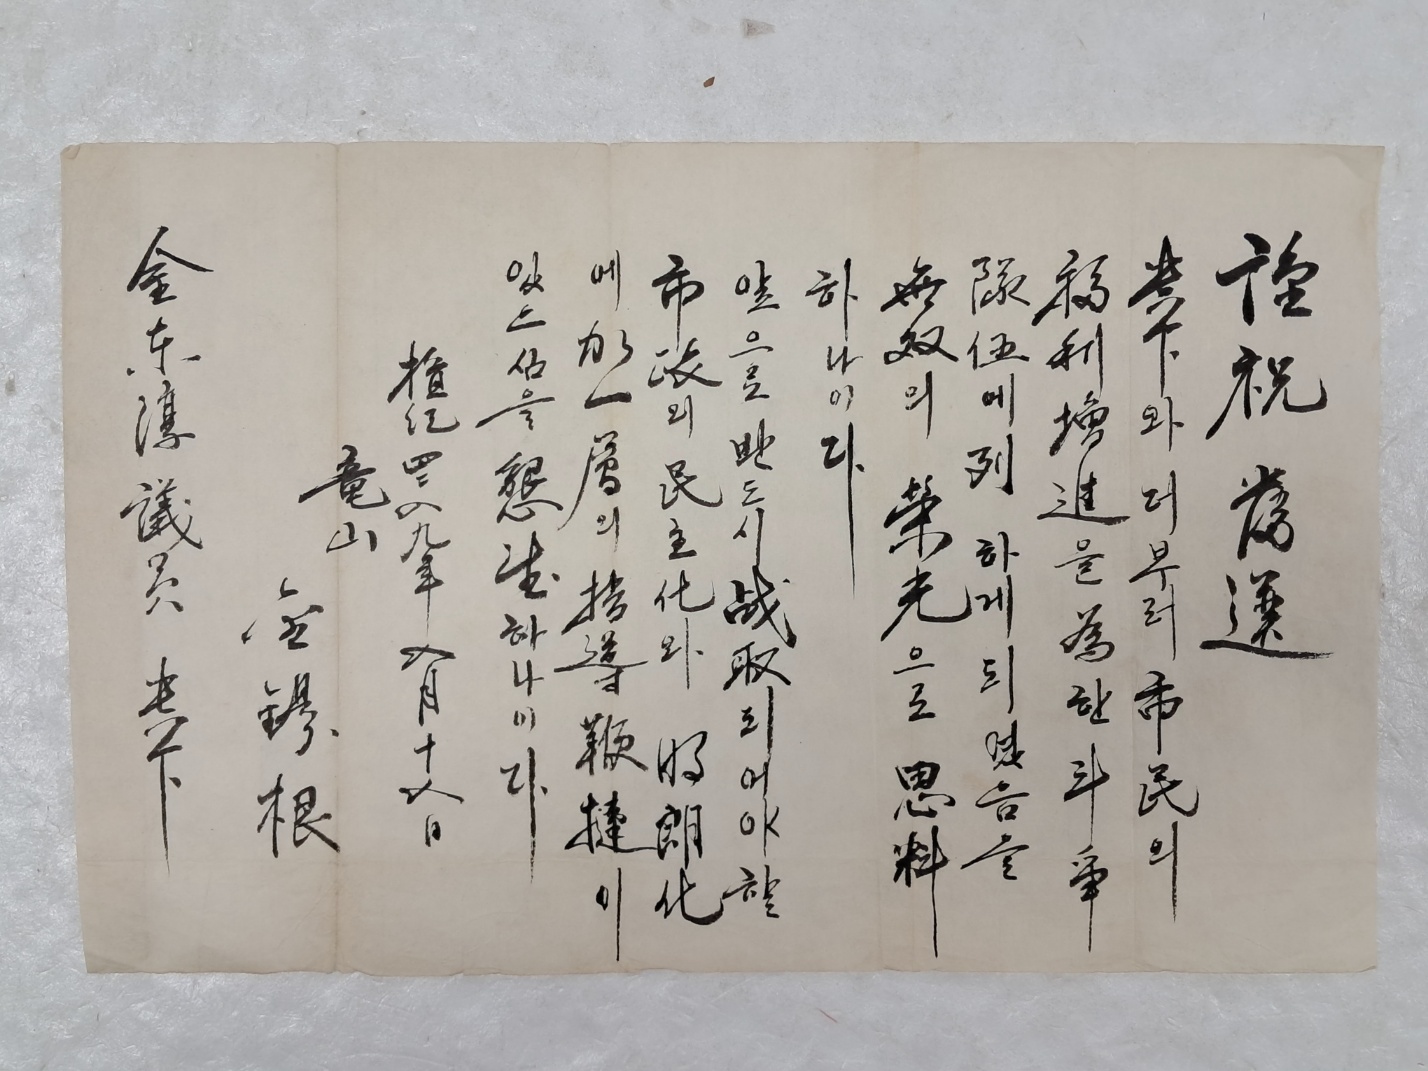 謹祝 當選
貴下와 더부러 市民의
福利增進을 爲한 斗爭
隊伍에 列하게 되였음을
無双의 榮光으로 思料
하나이다
앞으로 반드시 战取되어야 할
市政의 民主化와 明朗化
에 加一層의 指導鞭撻이
있으심을 懇望하나이다
檀紀 四二八九年 八月 十八日
竜山
金錫根
金東淳 議員 貴下